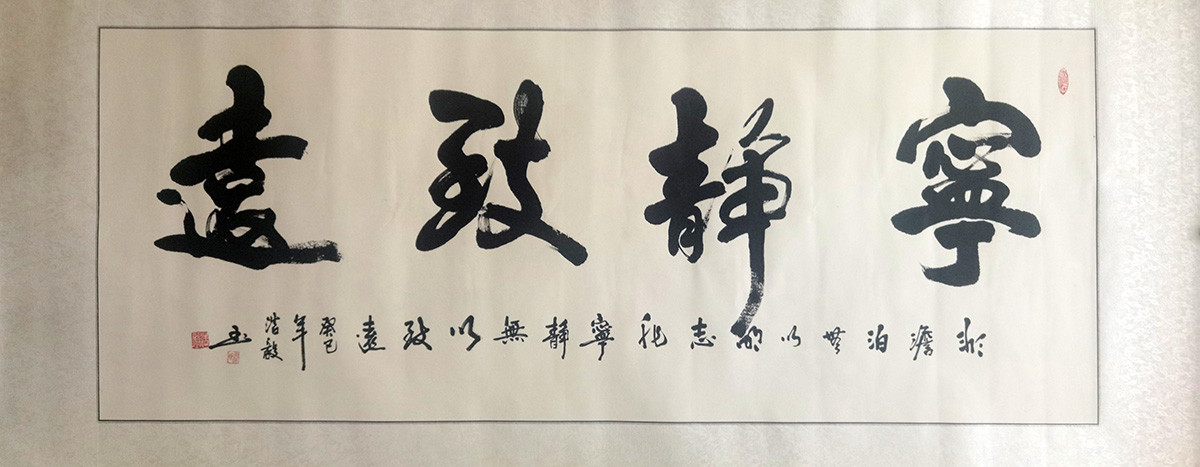 寧靜致遠
非澹泊無以明志非寧靜無以致遠
癸巳年浩毅書